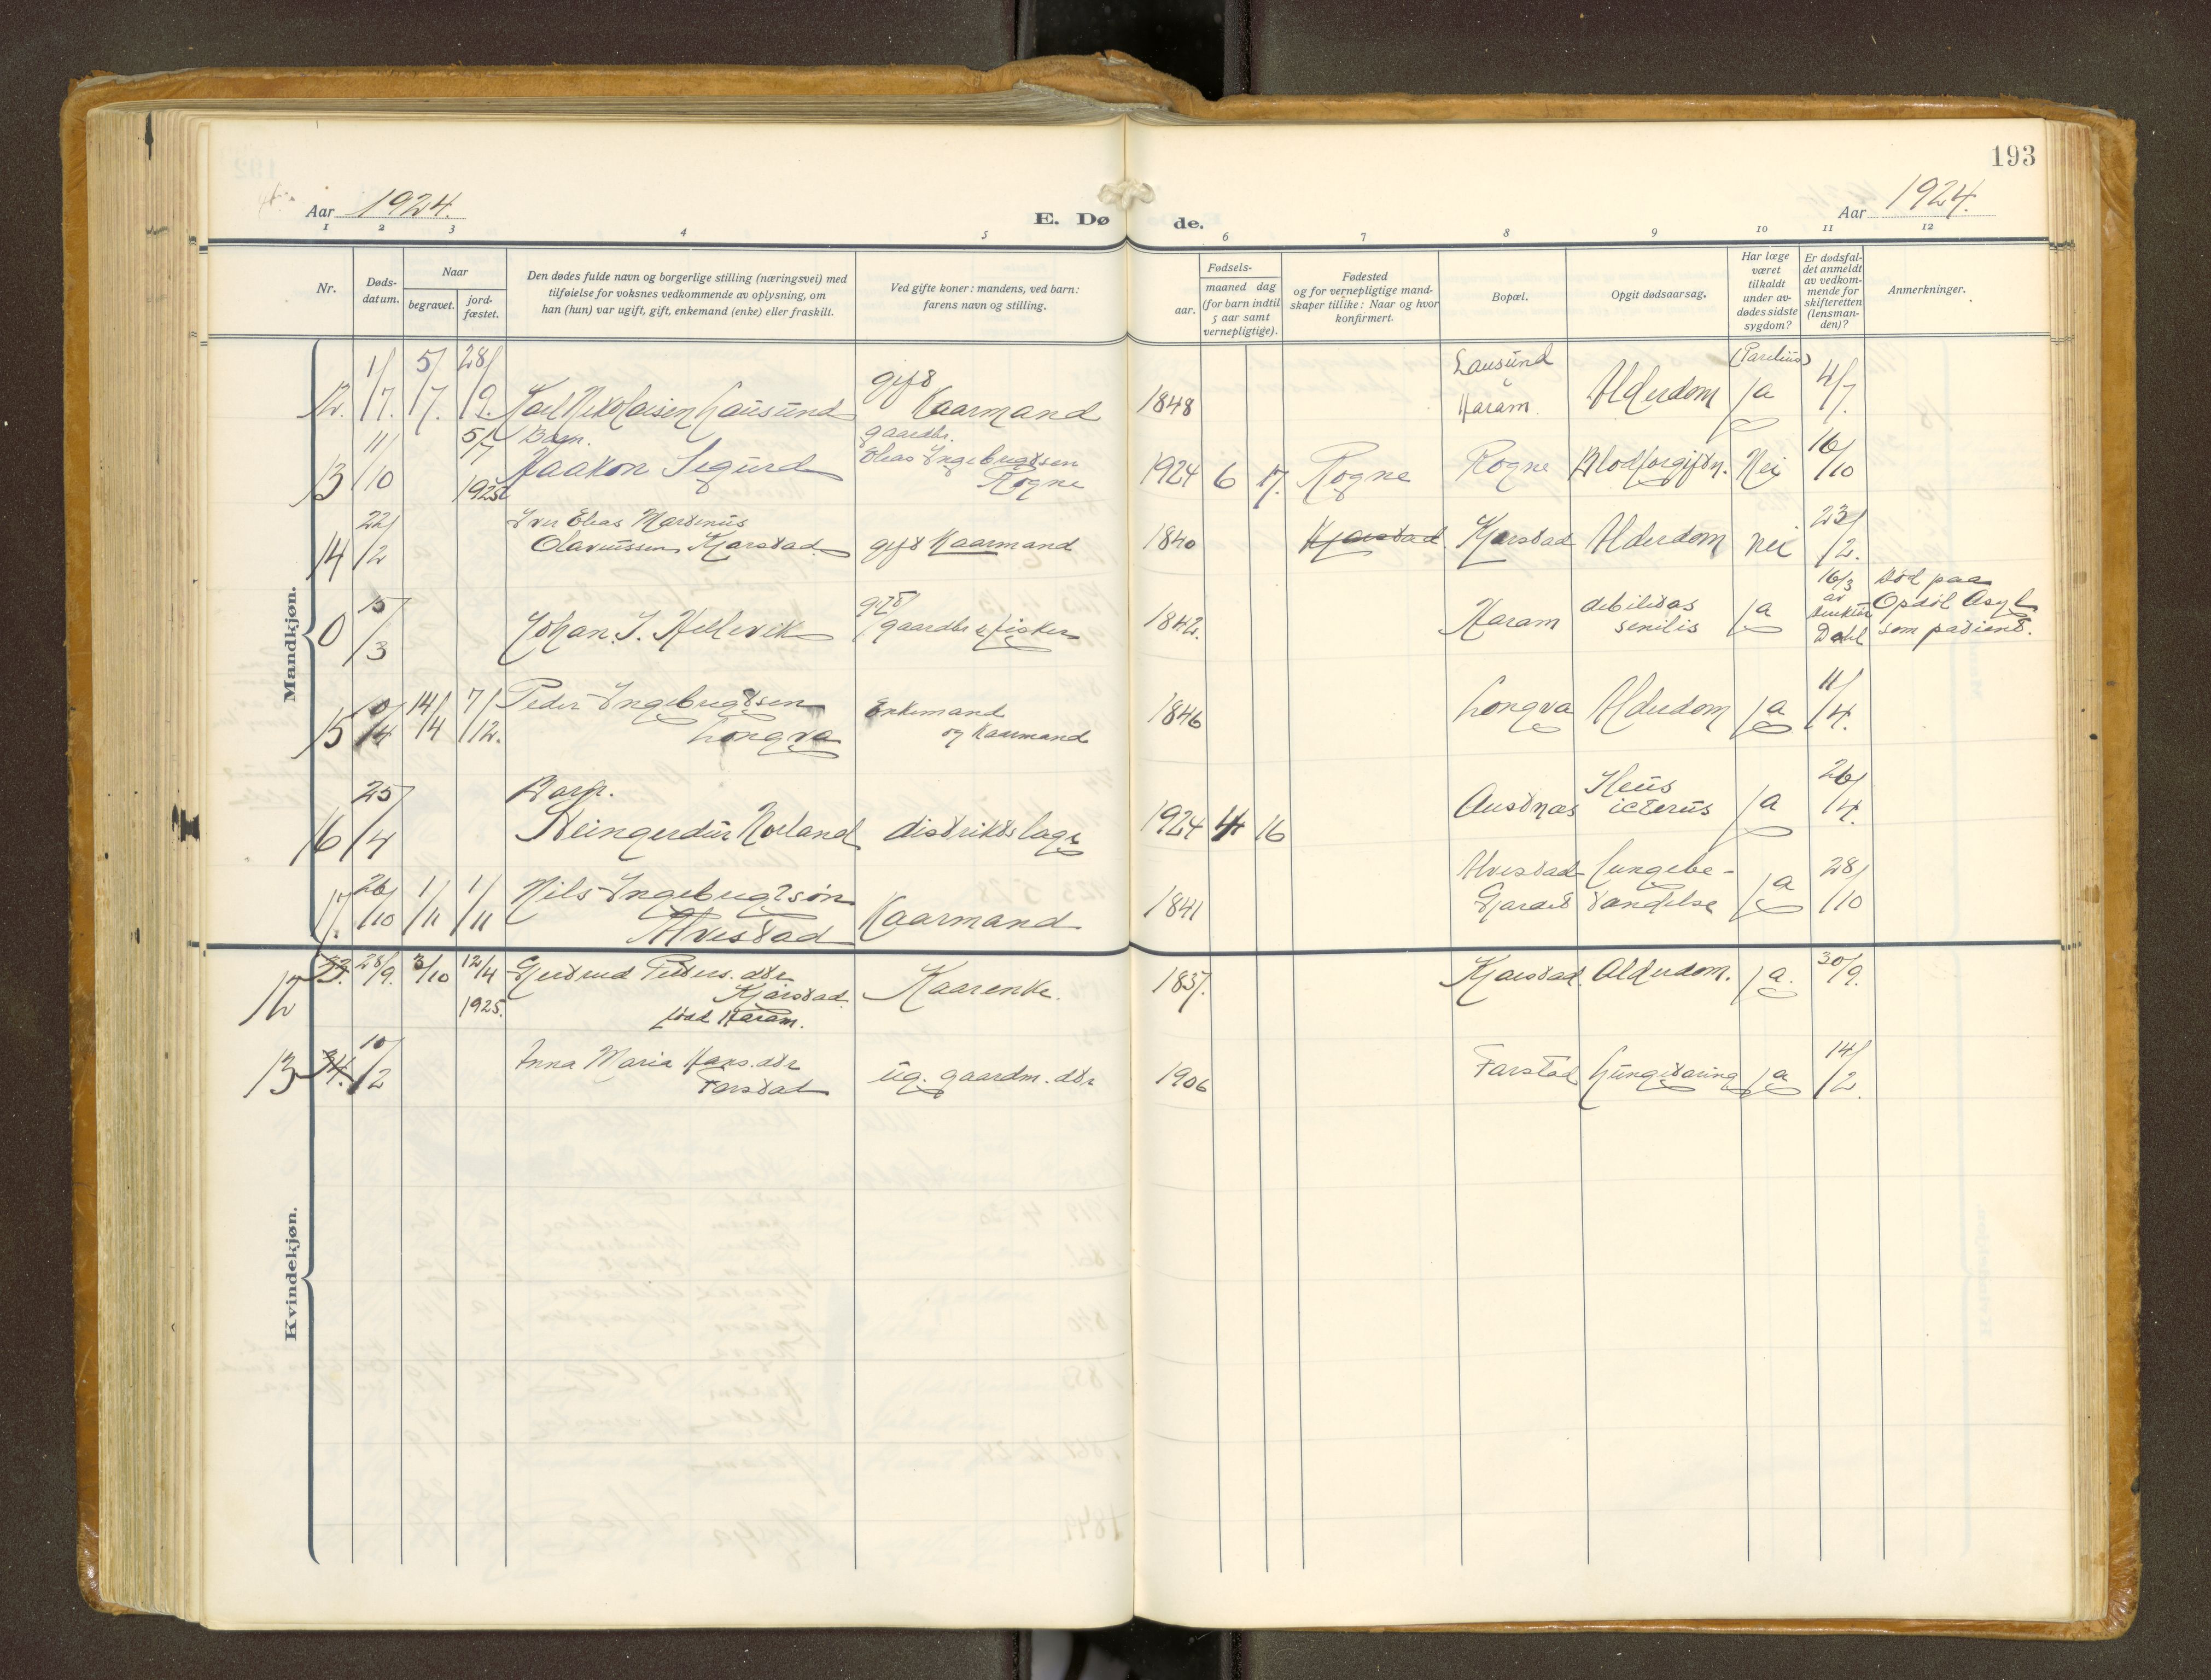 193
Aar 1924.
E. Døde.
Aar 1924.
1 2 3 4 5 6 7 8 9 10 11 12
Nr.
Døds-
datum.
Naar
begravet.
jord-
fæstet.
Den dødes fulde navn og borgerlige stilling (næringsvei) med
tilføielse for voksnes vedkommende av oplysning, om
han (hun) var ugift, gift, enkemand (enke) eller fraskilt.
Ved gifte koner: mandens, ved barn:
farens navn og stilling.
Fødsels-
aar.
maaned dag
(for barn indtil
5 aar samt
vernepligtige).
Fødested
og for vernepligtige mand-
skaper tillike: Naar og hvor
konfirmert.
Bopæl.
Opgit dødsaarsag.
Har læge
været
tilkaldt
under av-
dødes sidste
sygdom?
Er dødsfal-
det anmeldt
av vedkom-
mende for
skifteretten
(lensman-
den)?
Anmerkninger.
Mandkjøn.
12. 1/7. 5/7. 28/9. Karl Nikolaisen Lausund gift Kaarmand 1848 Lausund Haram. Alderdom Ja (Parelius) 4/7.
13 11/10 5/7 1925 Barn. Haakon Sigurd gaardbr. Elias Ingebrigtsen Rogne 1924 6 17. Rogne Rogne Blodforgiftn. Nei 16/10
14 22/2 Iver Elias Martinus
Olavussen Kjerstad gift Kaarmand 1840 Kjerstad Kjerstad Alderdom nei 23/2.
0 15/3 Johan. J. Hellevik gift gaardbr & fisker 1842. Haram debilitas senilis Ja 16/3 av direktør Dahl Død paa
Opdøl Asyl
som patient.
15 10/4 14/4 7/12. Peder Ingebrigtsen
Longva Enkemand
og kaarmand 1846 Longva Alderdom Ja 11/4.
16 25/4 Barn.
Steingerdur Norland distriktslæge 1924 4 16 Austnes Ileus
icterus Ja 26/4.
17. 26/10 1/11 1/11 Nils Ingebrigtsøn
Alvestad Kaarmand 1841 Alvestad
Gjerdet Lungebe-
tændelse Ja 28/10
Kvindekjøn.
12 33. 28/9. 3/10 12/4 1925. Gjertrud Peders. dtr
Kjerstad.
født Haram. Kaarenke. 1837. Kjerstad. Alderdom. Ja. 30/9.
13 34. 10/2 Anna Maria Hans. dtr
Farstad ug. gaardm. dtr 1906 Farstad Lungetæring Ja 14/2.